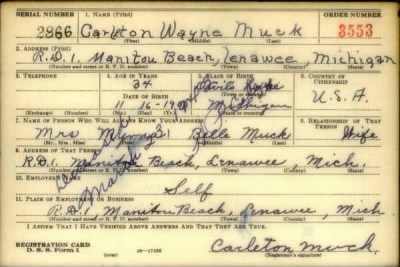 SERIAL NUMBER 1. NAME (Print) ORDER NUMBER
2866 Carleton Wayne Muck 3553
(First) (Middle) (Last)
2. ADDRESS (Print)
R.D.1. Manitou Beach, Lenawee Michigan
(Number and street or R. F. D. number) (Town) (County) (State)
3. TELEPHONE 4. AGE IN YEARS 5. PLACE OF BIRTH 6. COUNTRY OF CITIZENSHIP
34 Devils Lake
DATE OF BIRTH (Town or county)
11 16 Michigan U.S.A.
(Exchange) (Number) (Mo.) (Day) (Yr.) (State or country)
7. NAME OF PERSON WHO WILL ALWAYS KNOW YOUR ADDRESS 8. RELATIONSHIP OF THAT PERSON
Mrs Belle Muck Wife
(Mr., Mrs., Miss) (First) (Middle) (Last)
9. ADDRESS OF THAT PERSON
R.D.1. Manitou Beach, Lenawee, Mich.
(Number and street or R. F. D. number) (Town) (County) (State)
10. EMPLOYER'S NAME
Self
11. PLACE OF EMPLOYMENT OR BUSINESS
R.D.1 Manitou Beach, Lenawee, Mich
(Number and street or R. F. D. number) (Town) (County) (State)
I AFFIRM THAT I HAVE VERIFIED ABOVE ANSWERS AND THAT THEY ARE TRUE.
REGISTRATION CARD
D. S. S. Form 1 (over) 16—17105 Carleton Muck
(Registrant's signature)